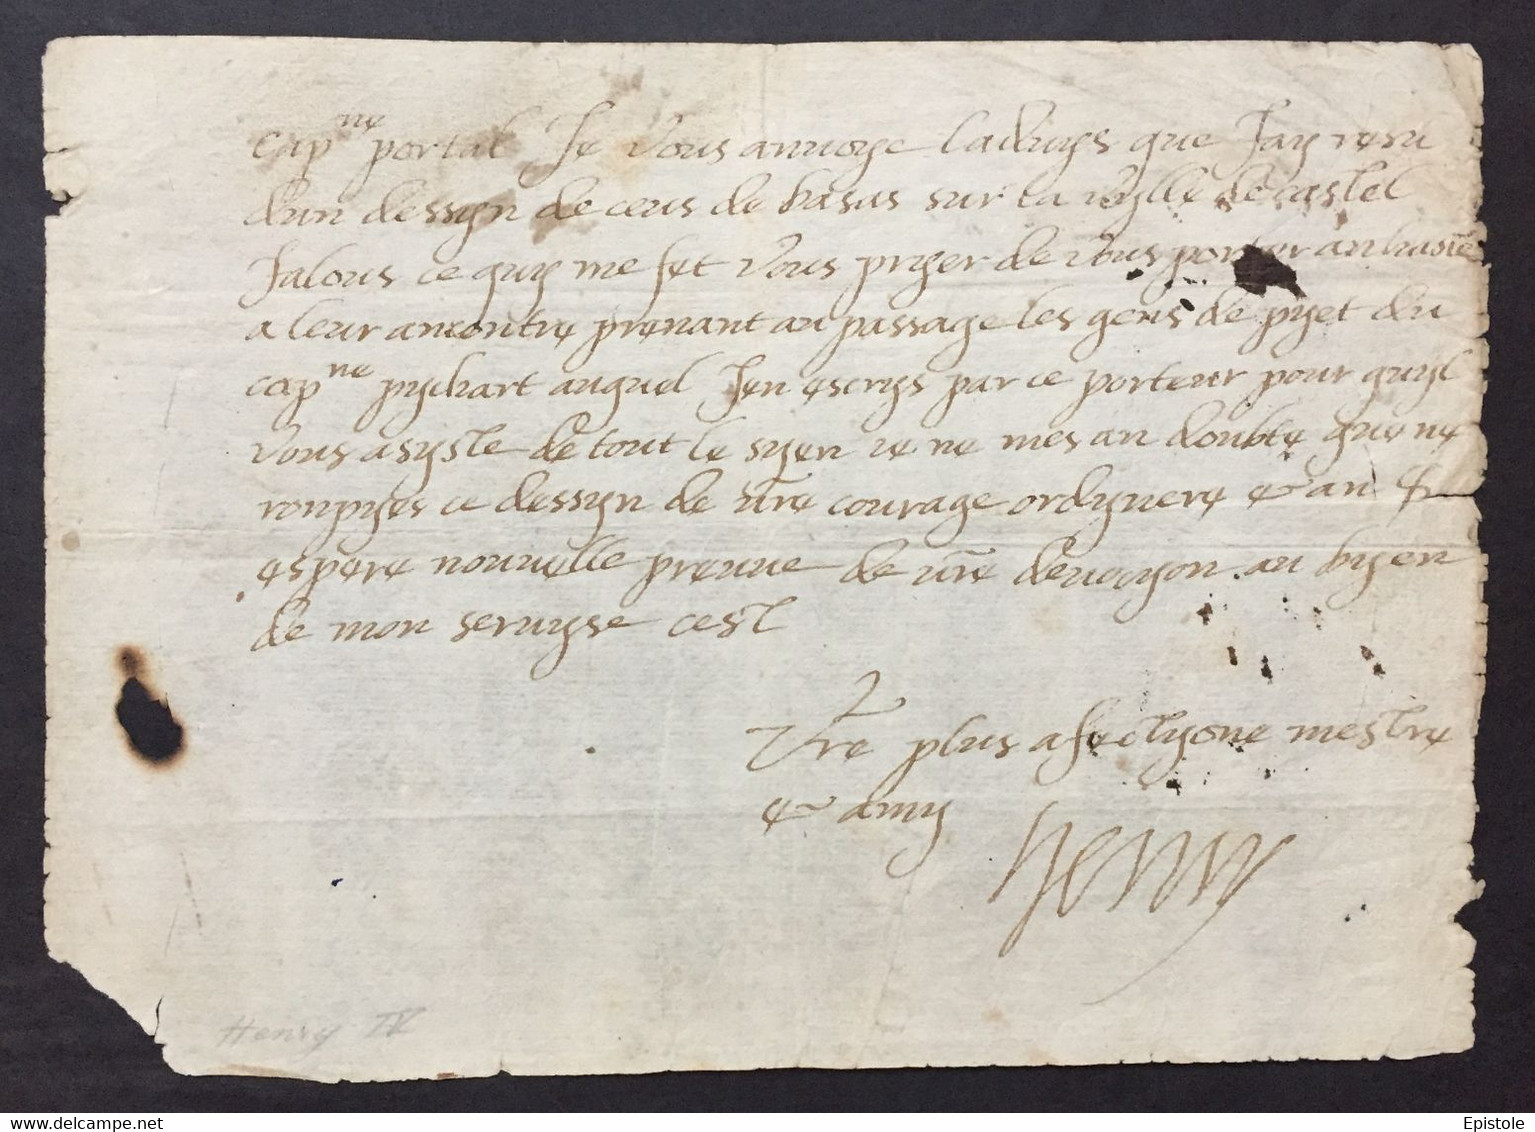 Cap^ne portal Je vous anuoye laduys que Jay resu
dun dessyn de ceus de basas sur la vylle de castel
Jalous ce quy me fet vous pryer de vous porter
a leur ancontre prenant au passage les gens de pyet du
cap^ne pychart auquel Jen escrys par ce porteur pour quyl
vous asyste de tout le syen Je ne mes an doubte que ne
ronpyes ce dessyn de vre courage ordynere & an
espere nouuelle preuue de vre deuocyon au byen
de mon seruyse cest
Vre plus afectyone mestre
& amy
Henry
Henry IV
Epistole